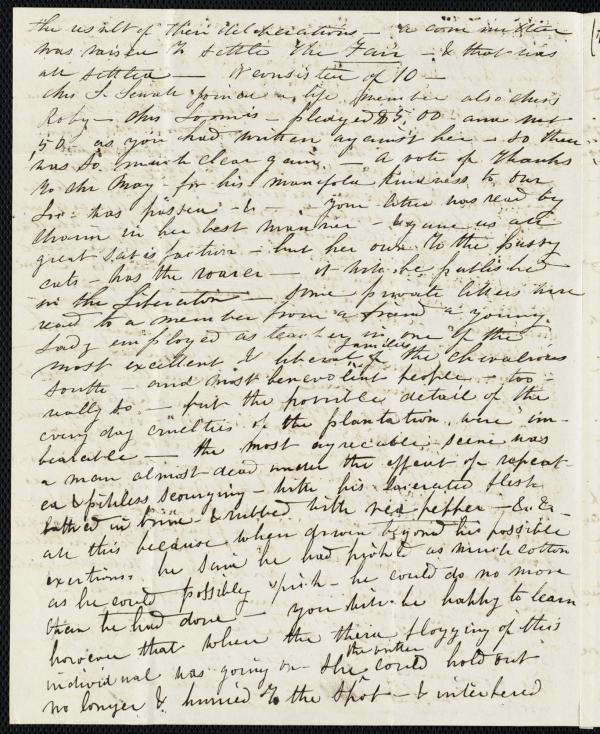 the result of their deliberations - a committee
was raised to settle the Fair - & that was
all settled - It consisted of 10 -
Mrs S. Sewall joined a life member also Miss
Roby - Mrs Loomis - pledged $5,00 and not
,50 as you had written against her - so there
was so much clear gain - a vote of thanks
to Mr May - for his manifold kindness to our
Soc: was passed - & - your letter was read by
in her best manner - & gave us all
great satisfaction - but her own to the pussy
cats - has the roarer - it will be published
in the Liberator - Some private letters were
read to a member from a friend a young
Lady employed as teacher in one of the
most excellent & liberal families of the chivalrous
South - and most benevolent people - too -
really so - but the horrible detail of the
every day cruelties of the plantation were un-
bearable - the most agreeable scene was
a man almost dead under the effect of repeat-
ed & pitiless scourging - with his lacerated flesh
in brine - & rubbed with red pepper - &c &c -
all this because when driven beyond his possible
exertions he said he had picked as much cotton
as he could possibly pick - he could do no more
than he had done - you will be happy to learn
however that when the flogging of this
individual was going on - she the writer could hold out
no longer & hurried to the spot - & interfered